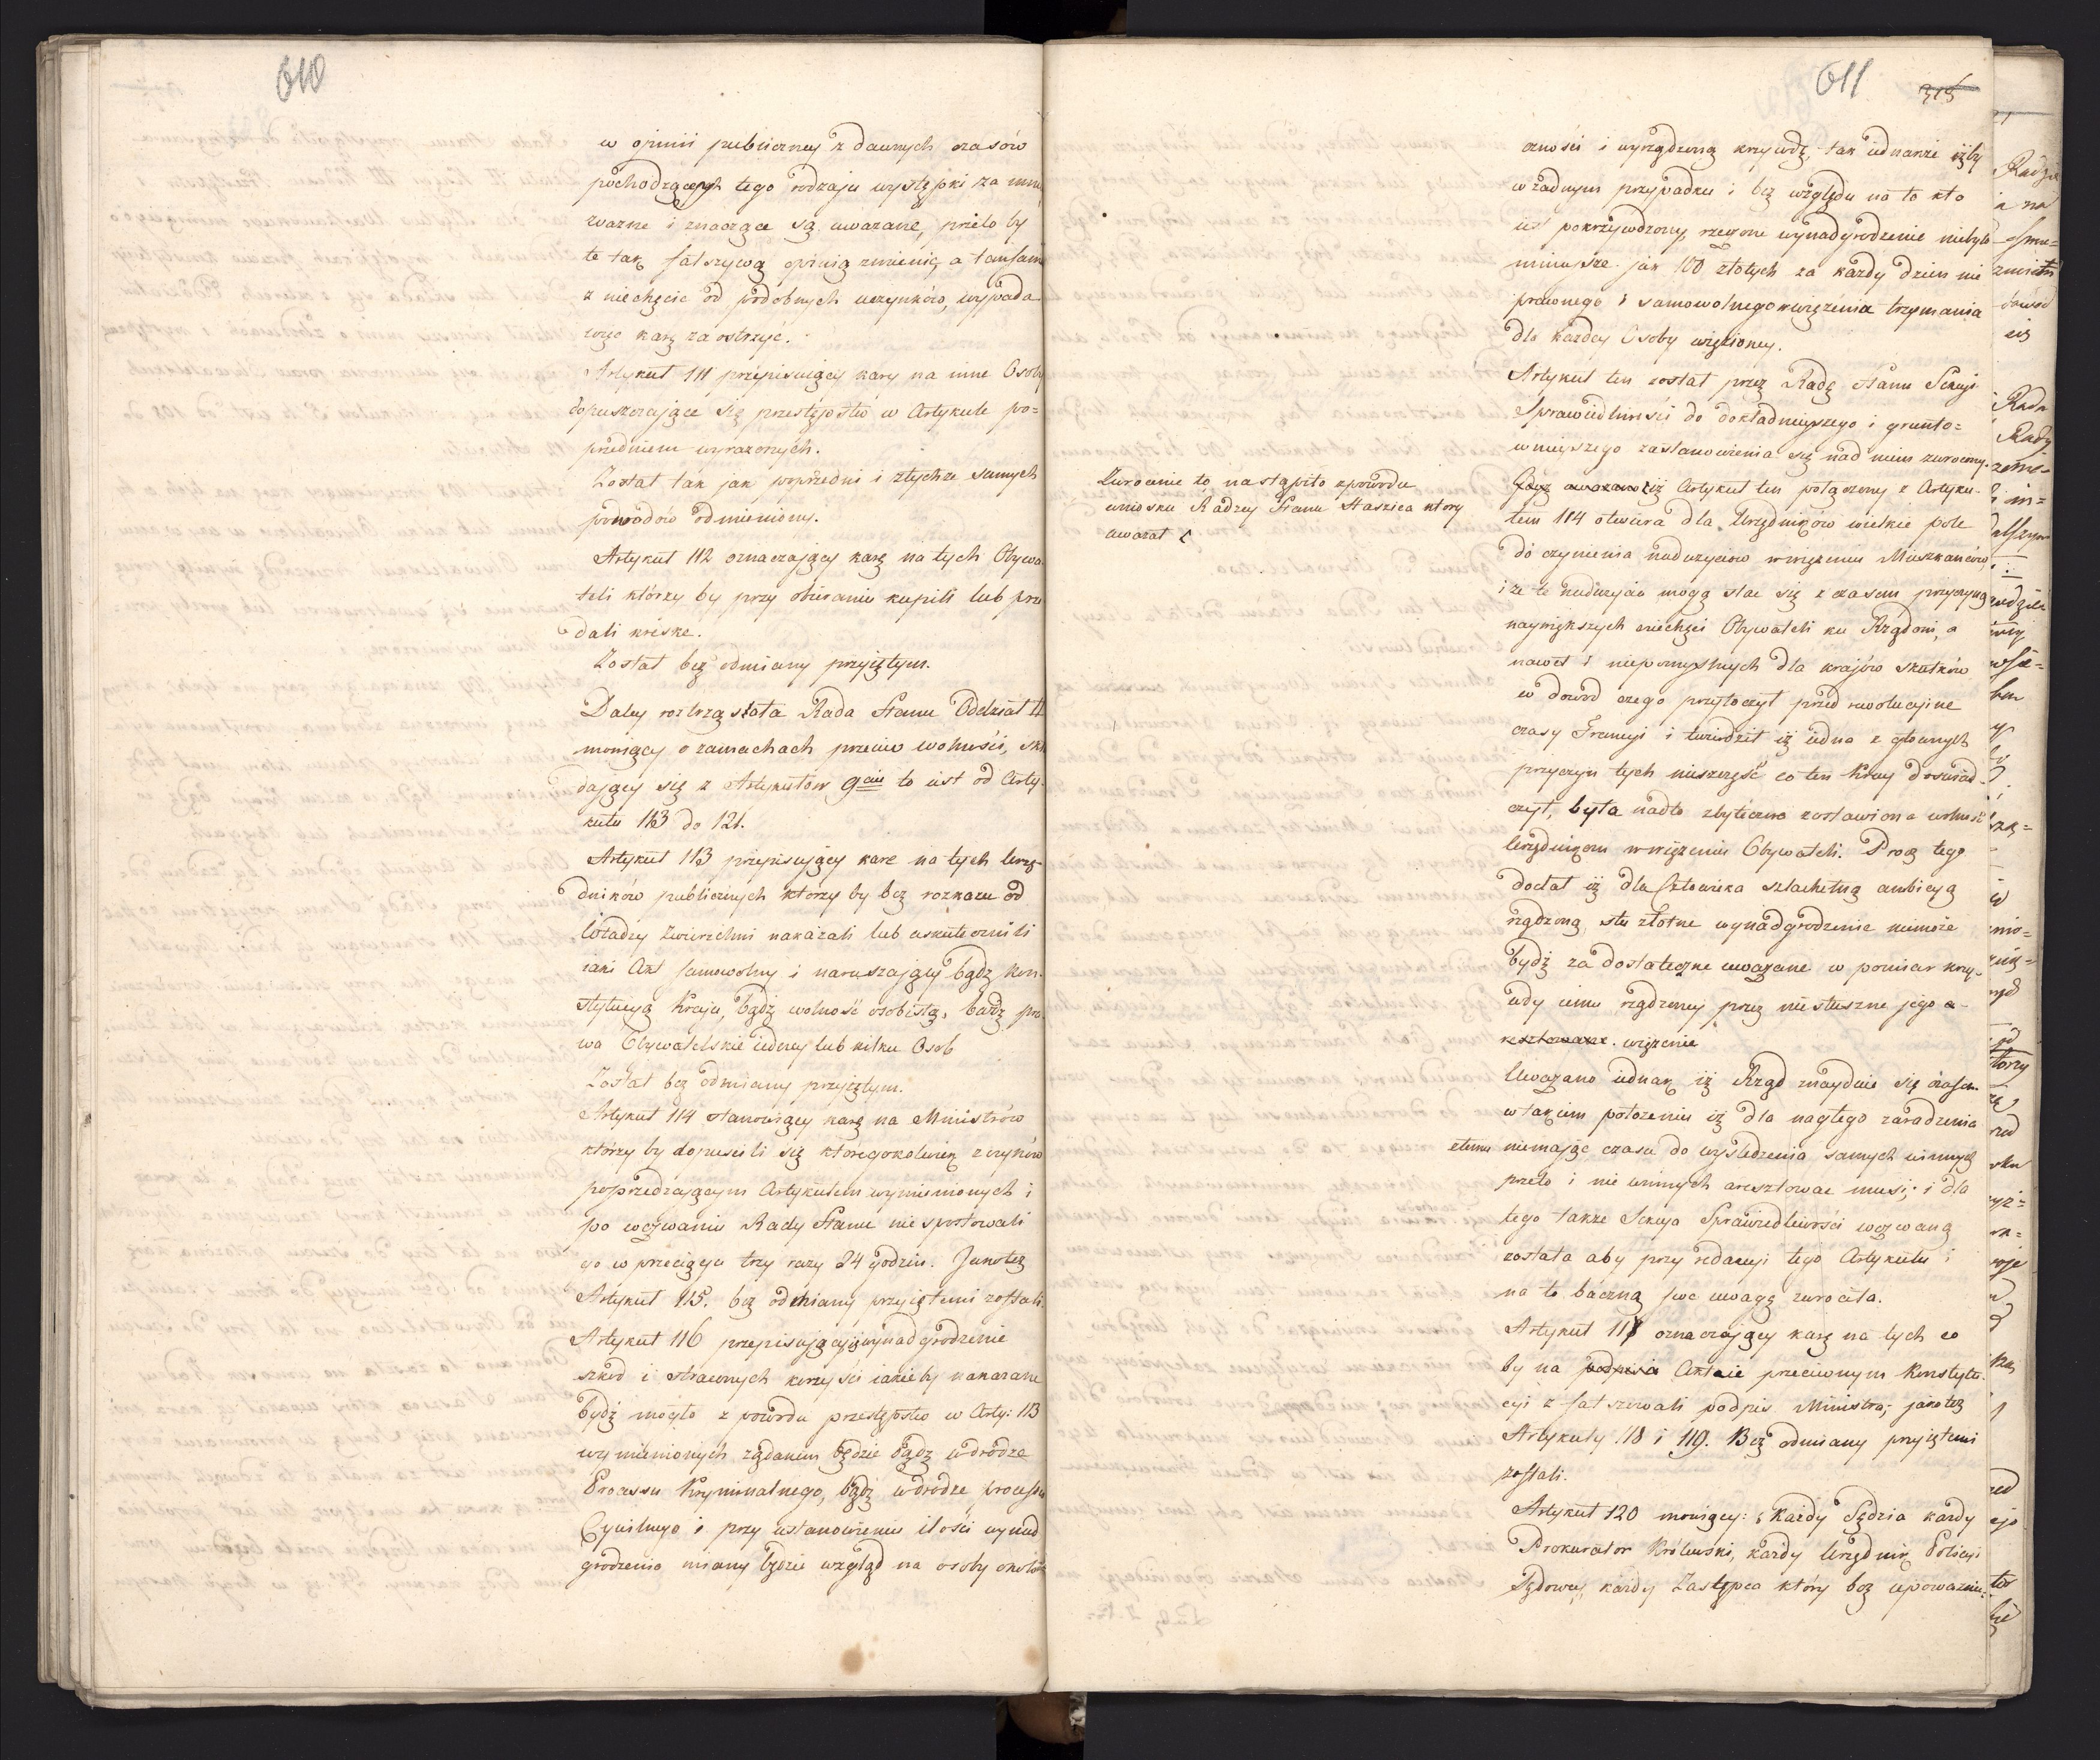 610
w opinii publiczney z dawnych czasów
pochodzącey tego rodzaju występki za mniey
ważne i znaczące są uważane, przeto by
te tak fałszywą opinią zmienić, a tam samem
zniechęcić od podobnych uczynków, wypada
więc karę zaostrzyć.
Artykuł 111 przepisuiący kary na inne Osoby
dopuszczaiące się przestępstw w Artykule po=
przednim wyrażonych.
Został tak jak poprzedni i z tychże samych
powodów odmieniony.
Artykuł 112 oznaczający karę na tych Obywa
teli którzy by przy obieraniu kupili lub prze
dali kreske.
Został bez odmiany przyiętym.
Daley roztrząsała Rada Stanu Oddział II
mówiący o zamachach przeciw wolności, skła
daiący się z Artykułów 9ciu to iest od Arty-
kułu 113 do 121.
Artykuł 113 przepisujący kare na tych Urzę-
dników publicznych którzy by bez rozkazu od
Władzy Zwierzchni nakazali lub uskutecznili
iaki Akt samowolny i naruszający bądź Kon-
stytucyą Kraju, bądź wolność osobistą, bądź pra
wa Obywatelskie iedney lub kilku Osób
Został bez odmiany przyiętym.
Artykuł 114 stanowiący karę na Ministrów
którzy by dopuścili się któregokolwiek z czynów
poprzedzającym Artykułem wymienionych i
po wezwaniu Rady Stanu nie sprostowali
go w przeciągu trzy razy 24 godzin. Jakoteż
Artykuł 115. bez odmiany przyiętemi zostali.
Artykuł 116 przepisujący wynadgrodzenie
szkód i straconych korzyści iakieby nakazane
bydź mogło z powodu przestępstw w Arty: 113
wymienionych żądanem będzie bądź w drodze
Processu Kryminalnego, bądź w drodze processu
Cywilnego i przy ustanowieniu ilości wynad
grodzenia miany będzie wzgląd na osoby okoli
611
315
czności i wyrządzoną krzywdę, tak iednakże iżby
w żadnym przypadku i bez względu na to kto
iest pokrzywdzony, rzeczone wynadgrodzenie niebyło
mnieysze jak 100 złotych za każdy dzień nie
prawnego i samowolnego w więzieniu trzymania
dla każdey Osoby więzioney.
Artykuł ten został przez Radę Stanu Sekcyi
Sprawiedliwości do dokładnieyszego i grunto=
wnieyszego zastanowienia się nad niem zwrócony.
Zwrócenie to nastąpiło z powodu
wniosku Radzcy Stanu Staszica który
uważał
gdyż uważano iż Artykuł ten połączony z Artyku-
łem 114 otwiera dla Urzędników wielkie pole
do czynienia nadużyciów w więzieniu Mieszkańców,
i że te nadużycia mogą stać się z czasem przyczyną
naywiększych niechęci Obywateli ku Rządowi, a
nawet i niepomyślnych dla krajów skutków
w dowód czego przytoczył przed rewolucyine
czasy Francyi i twierdził iż iedna z głownych
przyczyn tych nieszczęść co ten Kray doświad-
czył, była nadto zbyteczna zostawiona wolność
Urzędnikom w więzieniu Obywateli. Procz tego
dodał iż dla Człowieka szlachetną ambicyą
rządzoną, sto złotne wynadgrodzenie niemoże
bydź za dostateczne uważane w pomiar krzy-
wdy iemu rządzoney przez niesłuszne jego a-
resztowanie. więzienie
Uważano iednak iż Rząd znayduie się czasem
w takiem położeniu iż dla nagłego zaradzenia
złemu niemając czasu do wyśledzenia samych winnych
przeto i nie winnych aresztować musi; i dla
tego także Sekcya Sprawiedliwości wezwaną
została aby przy redakcyi tego Artykułu i
na to baczną swe uwagę zwróciła.
Artykuł 117 oznaczający karę na tych co
by na podpisie Aktcie przeciwnym Konstytu-
cyi z fałszowali podpis Ministra; jakoteż
Artykuły 118 i 119. Bez odmiany przyiętemi
zostali.
Artykuł 120 mówiący: Każdy Sędzia każdy
Prokurator Królewski, każdy Urzędnik Policyi
Sądowey, każdy Zastępca który bez upoważnie-